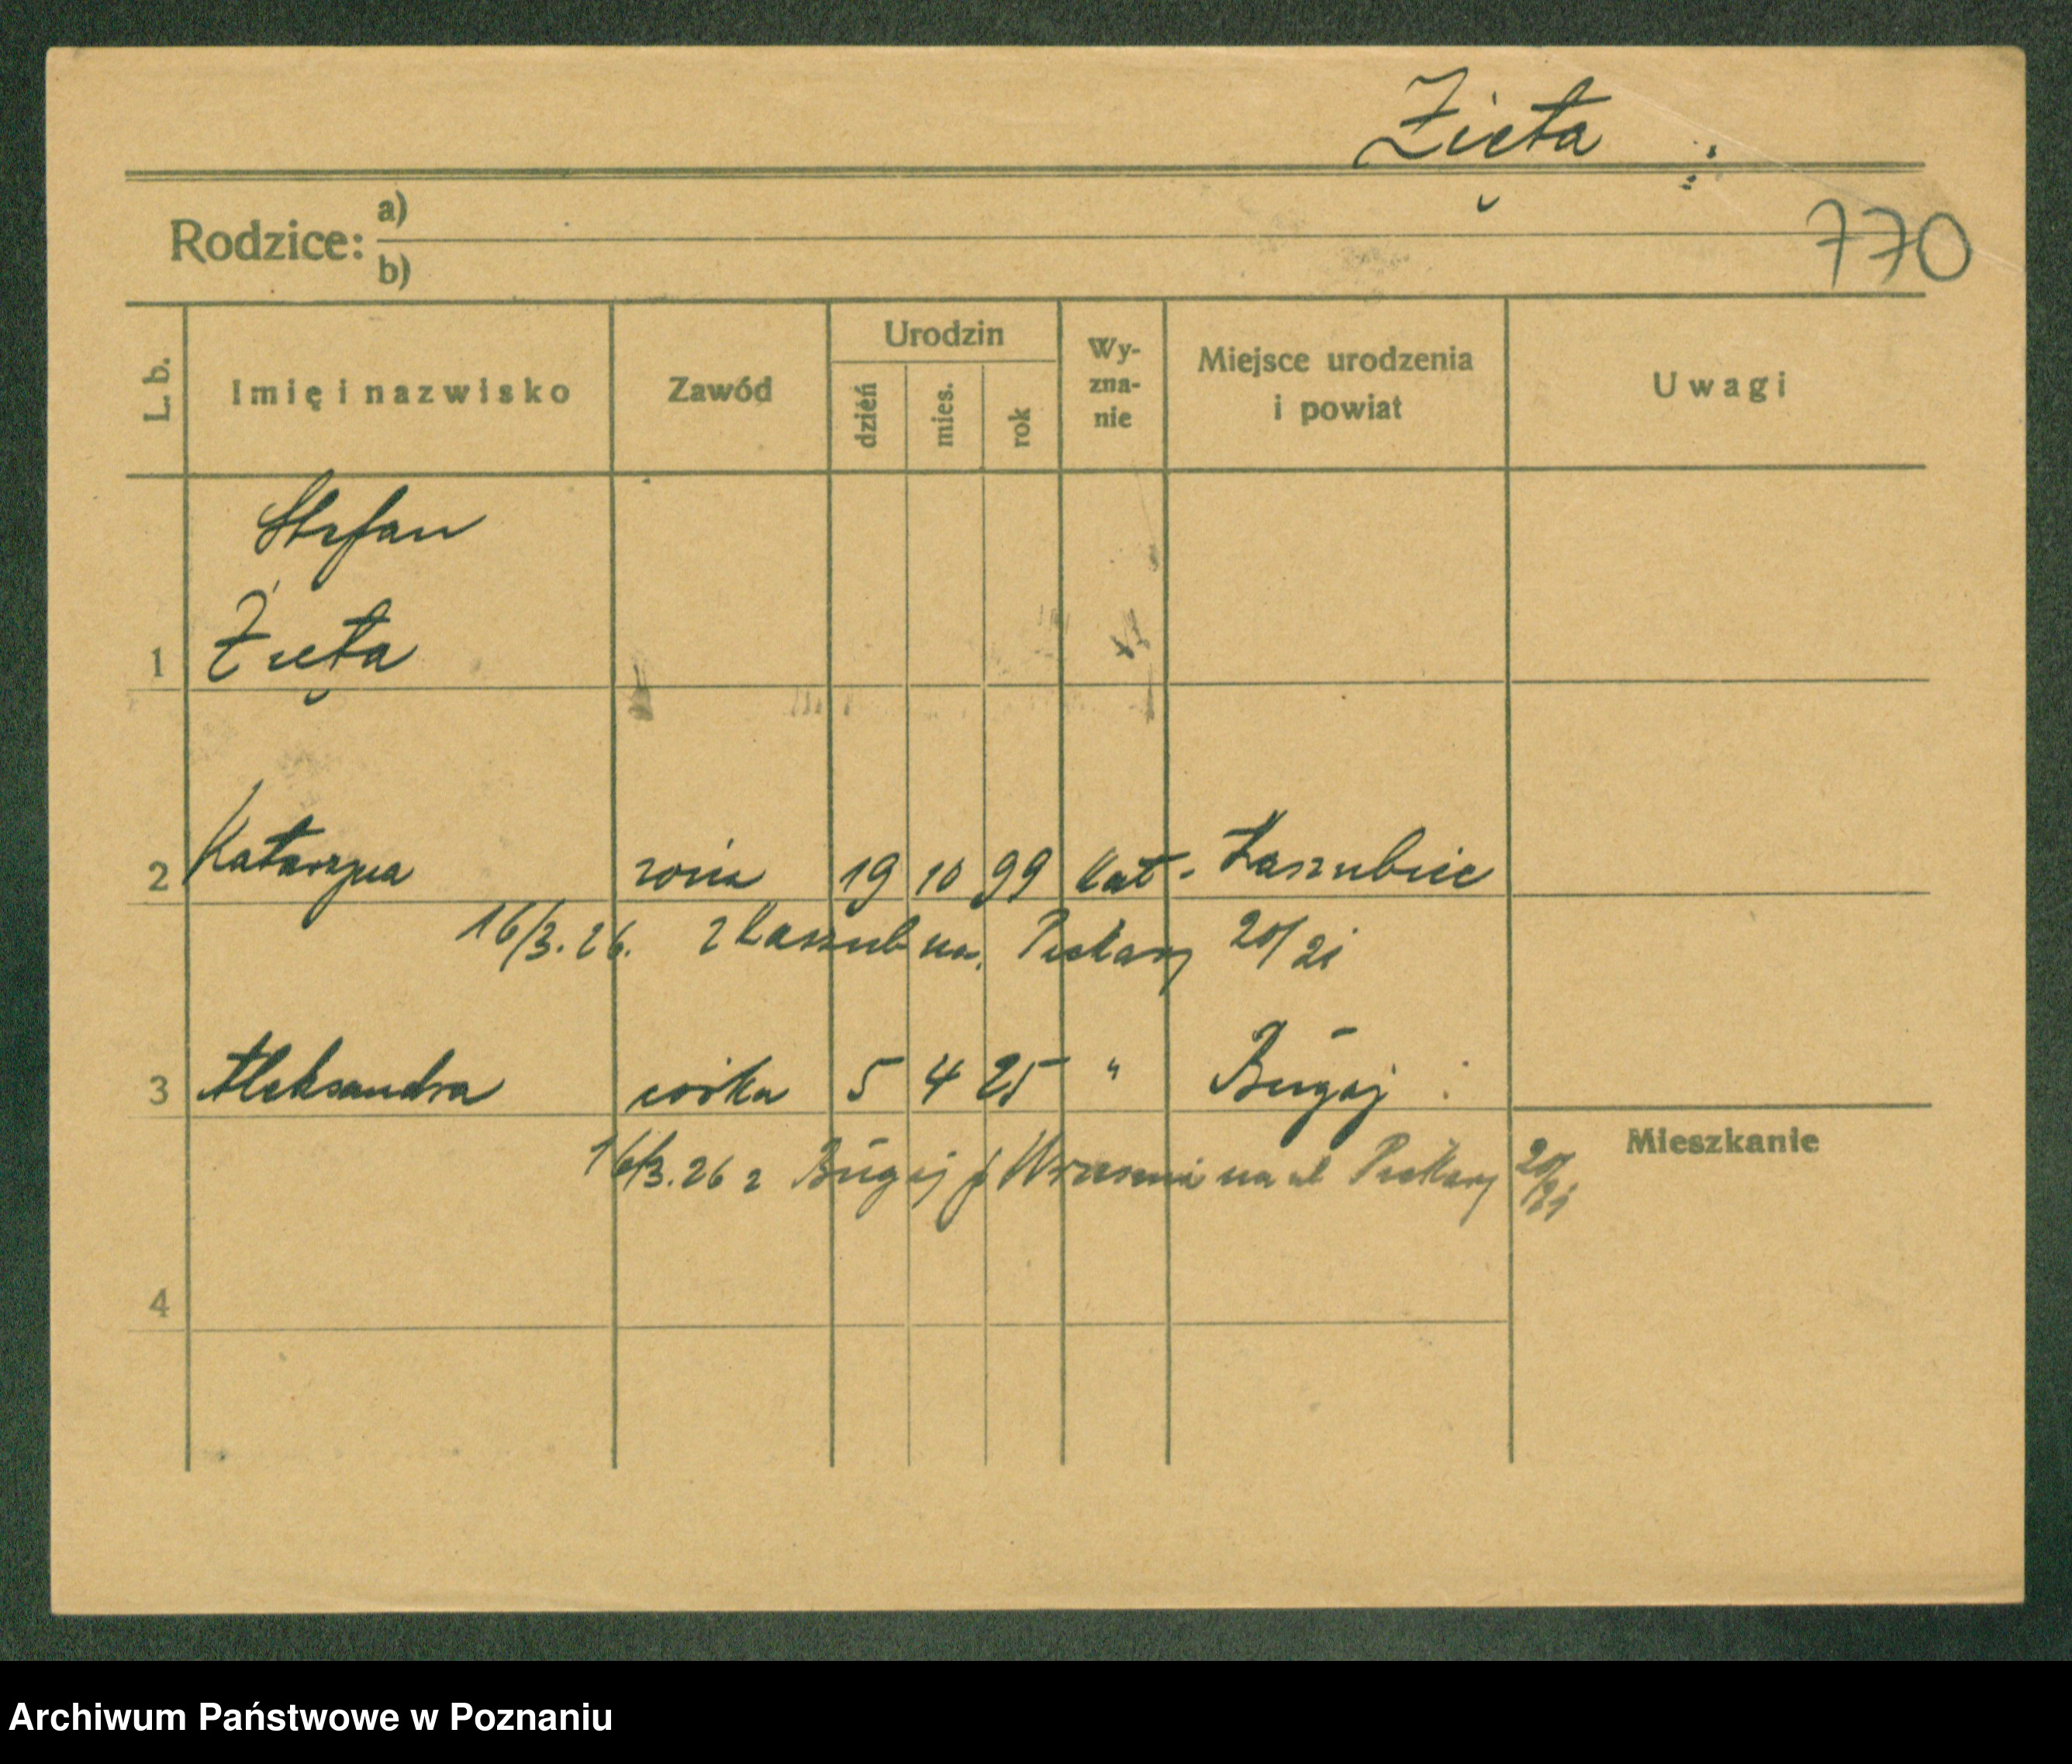 Zięta
Rodzice: a)
b)
770
L. b.
Imię i nazwisko
Zawód
Urodzin
dzień
mies.
rok
Wy-
zna-
nie
Miejsce urodzenia
i powiat
Uwagi
Stefan
1 Zięta
2 Katarzyna żona 19 10 99 kat. Kaszubiec
16/3.26. z Kaszub na. Piekary 20/21
3 Aleksandra córka 5 4 25 " Bugaj
Mieszkanie
16/3.26 z Bugaj p Września na ul Piekary 20/21
4
Archiwum Państwowe w Poznaniu